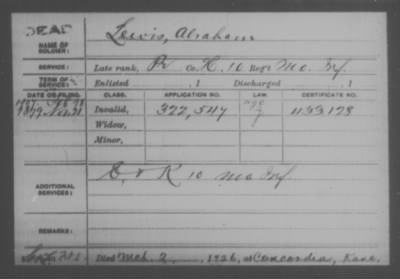 DEAD
NAME OF SOLDIER: Lewis, Abraham
SERVICE: Late rank, Pv Co. H. 10 Reg't Mo. Inf.
TERM OF SERVICE: Enlisted , 1 Discharged , 1
DATE OF FILING. CLASS. APPLICATION NO. LAW. CERTIFICATE NO.
Invalid, 322,547 1133178
Widow,
Minor,
ADDITIONAL SERVICES: C & K 10 Mo Inf
REMARKS:
Died Mch. 2, 1926, at Concordia, Kans.